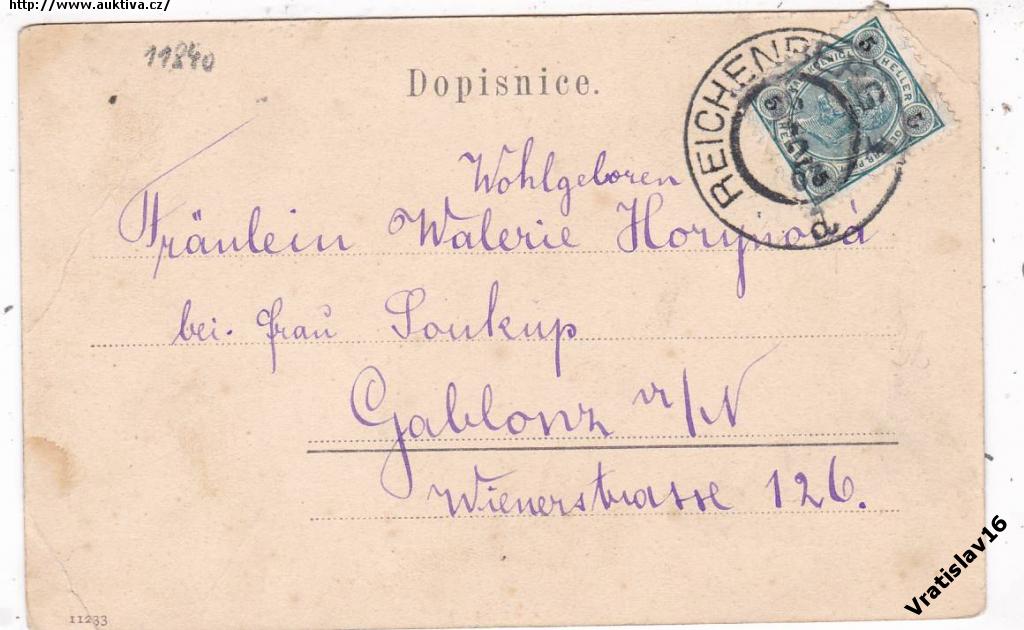 http://www.auktiva.cz/
11840
Dopisnice.
REICHENBERG
5 HELLER 5
Wohlgeboren
Fräulein Walerie Horynová
bei. Frau Soukup
Gablonz a/N
Wienerstrasse 126.
11233
Vratislav16